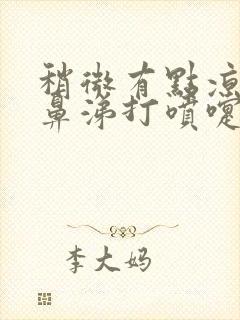 稍微有點凉
鼻涕打噴嚏
李大妈